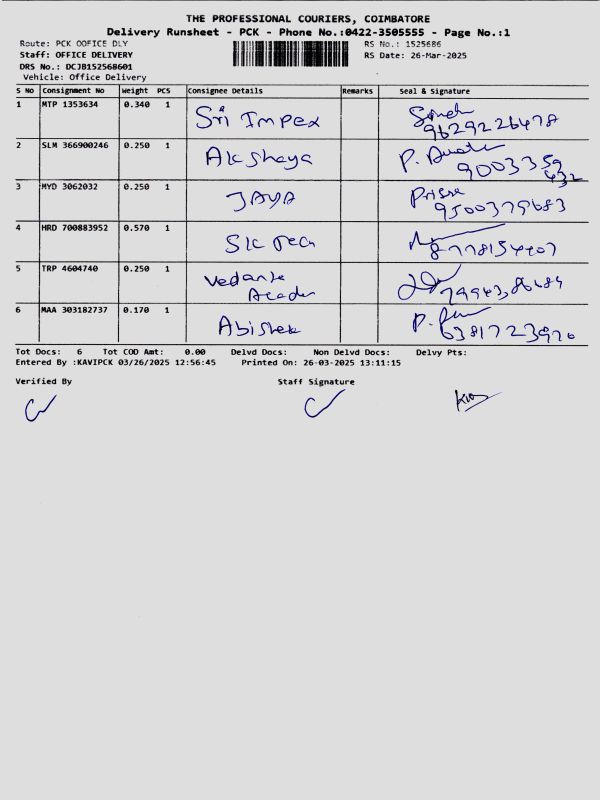 THE PROFESSIONAL COURIERS, COIMBATORE
Delivery Runsheet - PCK - Phone No.:0422-3505555 - Page No.:1
Route: PCK OOFICE DLY
RS No.: 1525686
Staff: OFFICE DELIVERY
RS Date: 26-Mar-2025
DRS No.: DCJB152568601
Vehicle: Office Delivery
S No Consignment No Weight PCS Consignee Details Remarks Seal & Signature
1 MTP 1353634 0.340 1 Sri Impex
9629226478
2 SLM 366900246 0.250 1 Akshaya P.
9003359
432
3 MYD 3062032 0.250 1 JAYA
9500379683
4 HRD 700883952 0.570 1
8778154407
5 TRP 4604740 0.250 1 Vedanta
6 MAA 303182737 0.170 1 Abishek P.
6381723970
Tot Docs: 6 Tot COD Amt: 0.00 Delvd Docs: Non Delvd Docs: Delvy Pts:
Entered By :KAVIPCK 03/26/2025 12:56:45 Printed On: 26-03-2025 13:11:15
Verified By Staff Signature